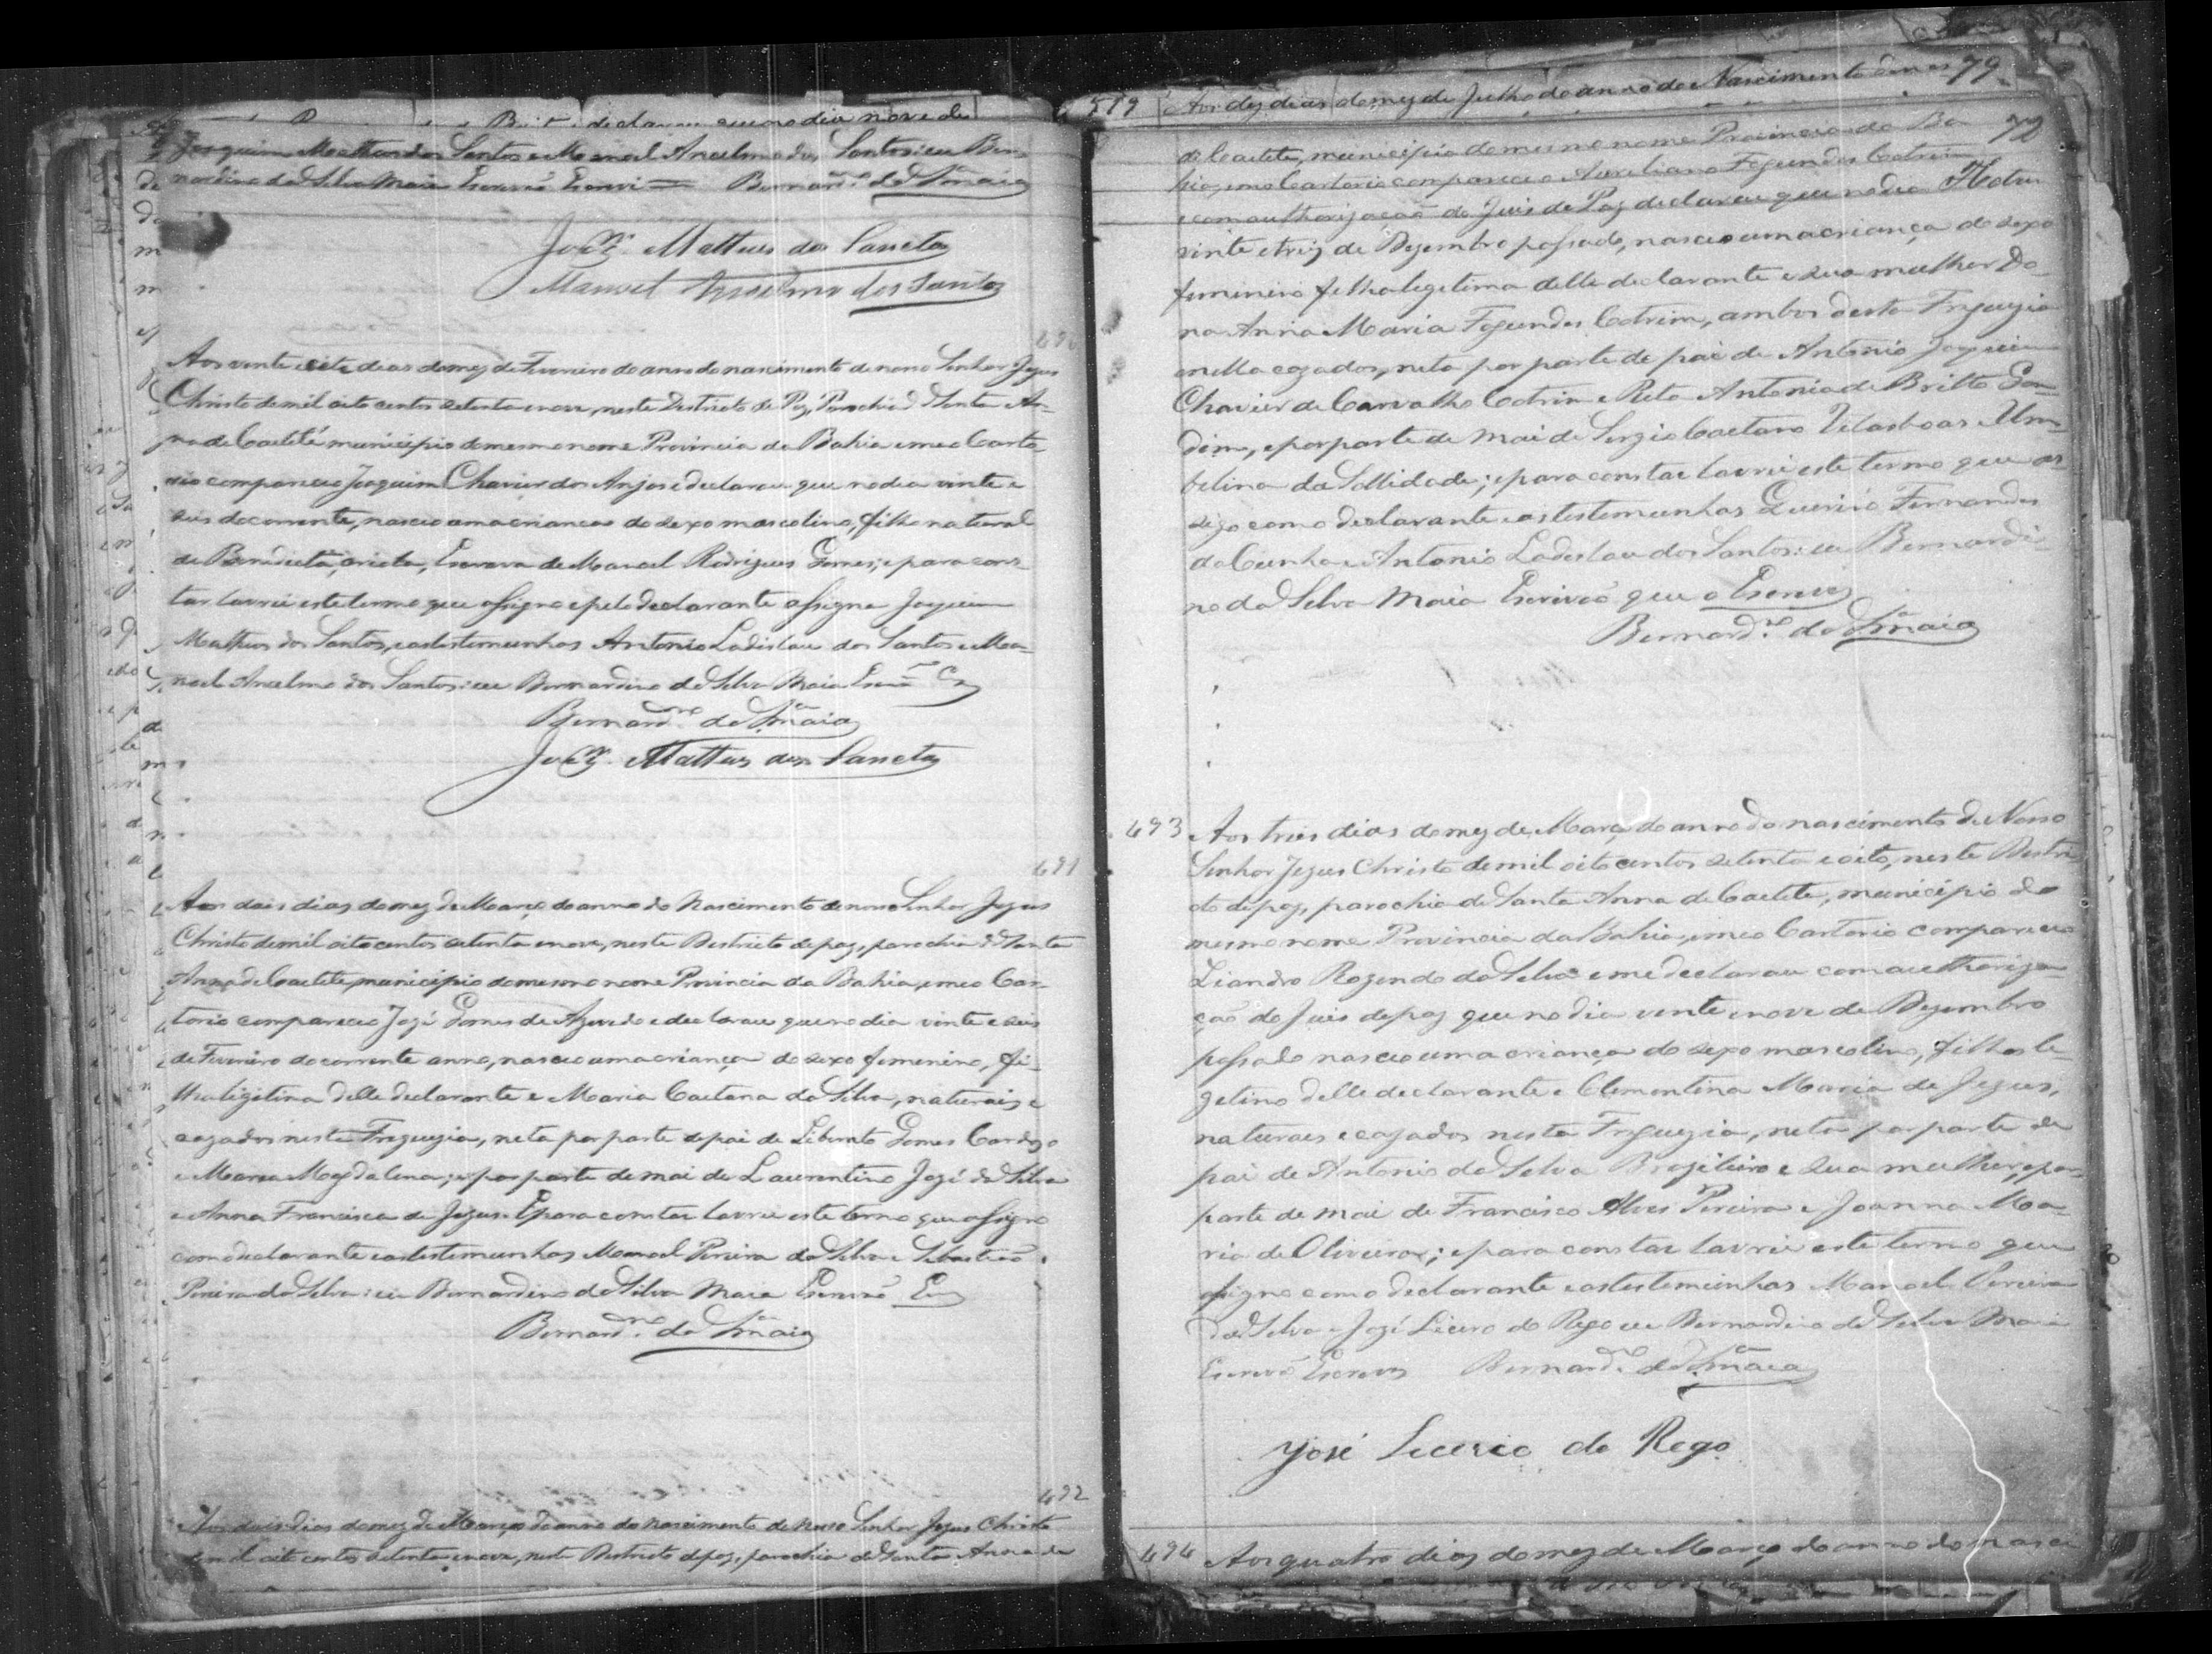 declarou que no dia nove de
Joaquim Matheus dos Santos e Manoel Anselmo dos Santos: eu Ber-
nardino da Silva Maia Escrivão Escrevi = Bernard.no da S.a Maia
Joaq.m Mattheus dos Sanctos
Manoel Anselmo dos Santos
490
Aos vinte e sete dias do mez de Fevereiro do anno do nascimento de nosso Senhor Jezus
Christo de mil oito centos setenta e nove, neste Destricto de Paz, Parochia de Santa An-
na de Caetité municipio do mesmo nome Provincia da Bahia em meo Carto-
rio compareceo Joaquim Chavier dos Anjos e declarou que no dia vinte e
seis do corrente, nasceo uma criança do sexo mascolino, filho natural
de Benedicta, criola, Escrava de Manoel Rodrigues Gomes; e para cons-
tar lavrei este termo que assigno e pelo declarante assigna Joaquim
Matheus dos Santos, e as testemunhas Antonio Ladislau dos Santos e Ma-
noel Anselmo dos Santos: eu Bernardino da Silva Maia Escrm
Bernard.no da S.a Maia
Joaq.m Mattheus dos Sanctos
491
Aos dois dias do mez de Março do anno do Nascimento de nosso Senhor Jezus
Christo de mil oito centos setenta e nove, neste Destricto de paz, parochia de Santa
Anna de Caetite, municipio do mesmo nome Provincia da Bahia, em meo Car-
torio compareceo Jozé Gomes de Azevedo e declarou que no dia vinte e seis
de Fevereiro do corrente anno, nasceo uma criança do sexo femenino, fi-
lha ligitima delle declarante e Maria Caetana da Silva, naturais e
cazados nesta Freguezia, neta por parte de pai de Liberato Gomes Cardozo
e Maria Magdalena; e por parte de mai de Laurentino Jozé da Silva
e Anna Francisca de Jezus. E para constar lavrei este termo que assigno
com o declarante e as testemunhas Manoel Pereira da Silva e Sebastião
Pereira da Silva: eu Bernardino da Silva Maia Escrivão
Bernard.no da S.a Maia
492
Aos dois dias do mez de Março do anno do nascimento de nosso Senhor Jezus Christo
de mil oito centos setenta e nove, neste Destricto de paz, parochia de Santa Anna de
519 Aos dez dias do mez de Julho do anno do Nascimento de nos 79
72
de Caetete, municipio do mesmo nome Provincia da Ba
hia, em o Cartorio compareceo Aureliano Fagundes Cotrim
e com authorização do Juis de Paz declarou que no dia
vinte e trez de Dezembro passado, nasceo uma criança do sexo
feminino filha legetima delle declarante e sua mulher Do-
na Anna Maria Fagundes Cotrim, ambos desta Freguezia
e nella cazados, neta por parte de pai de Antonio Joaquim
Chavier de Carvalho Cotrim e Rita Antonia de Britto Gon-
dim, e por parte de mai de Sergio Caetano Vilasboas e Um-
belina da Sollidade; e para constar lavrei este termo que as-
signo com o declarante e as testemunhas Quirino Fernandes
da Cunha e Antonio Ladeslau dos Santos: eu Bernardi-
no da Silva Maia Escrivão que o Escrevi
Bernard.no da S.a Maia
493 Aos treis dias do mez de Março do anno do nascimento de Nosso
Senhor Jezus Christo de mil oito centos setenta e oito, neste Destri
cto de paz, parochia de Santa Anna de Caetite, municipio do
mesmo nome Provincia da Bahia, em meo Cartorio compareceo
Liandro Rozendo da Silva e me declarou com authoriza
ção do Juis de paz que no dia vinte e nove de Dezembro
passado nasceo uma criança do sexo mascolino, filho le-
getimo delle declarante e Clementina Maria de Jezus,
naturaes e cazados nesta Freguezia, neto por parte de
pai de Antonio da Silva Brazileiro e sua mulher, e por
parte de mai de Francisco Alves Pereira e Joanna Ma-
ria de Oliveira; e para constar lavrei este termo que
assigno com o declarante e as testemunhas Manoel Pereira
da Silva e Jozé Licero do Rego eu Bernardino da Silva Maia
Escrivão Escrevi Bernard.no da S.a Maia
José Licerio do Rego
494 Aos quatro dias do mez de Março do anno do nasci